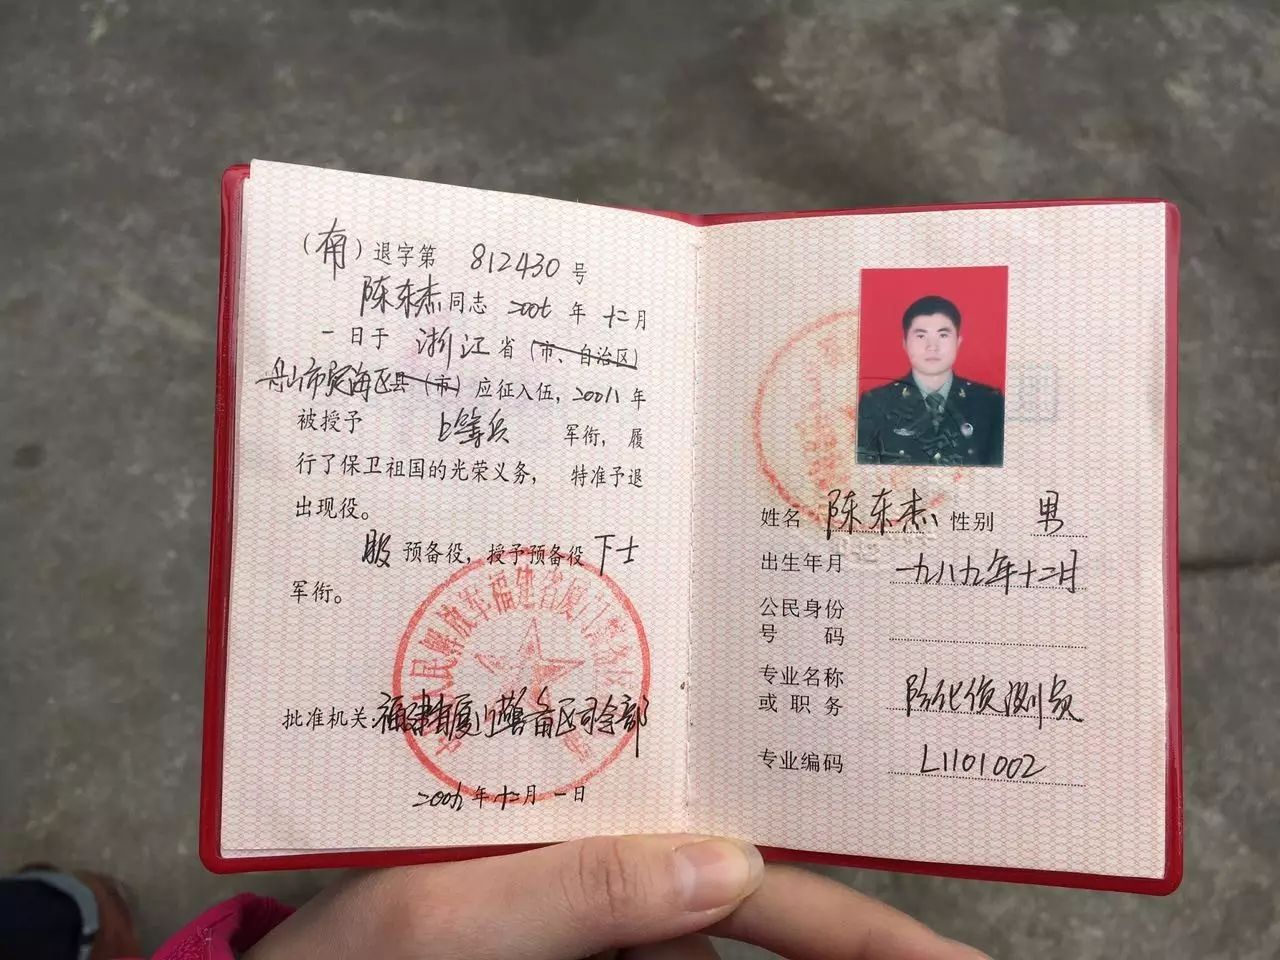 （南）退字第 812430 号
陈东杰同志 2006 年 十二月
一日于 浙江省（市、自治区）
舟山市定海区县（市）应征入伍，年
被授予 上等兵 军衔，履
行了保卫祖国的光荣义务， 特准予退
出现役。
服预备役，授予预备役 下士
军衔。
批准机关：福建省厦门警备区司令部
年十二月一日
姓名 陈东杰 性别 男
出生年月 一九八九年十二月
公民身份
号 码
专业名称
或职务 防化侦测员
专业编码 L1101002